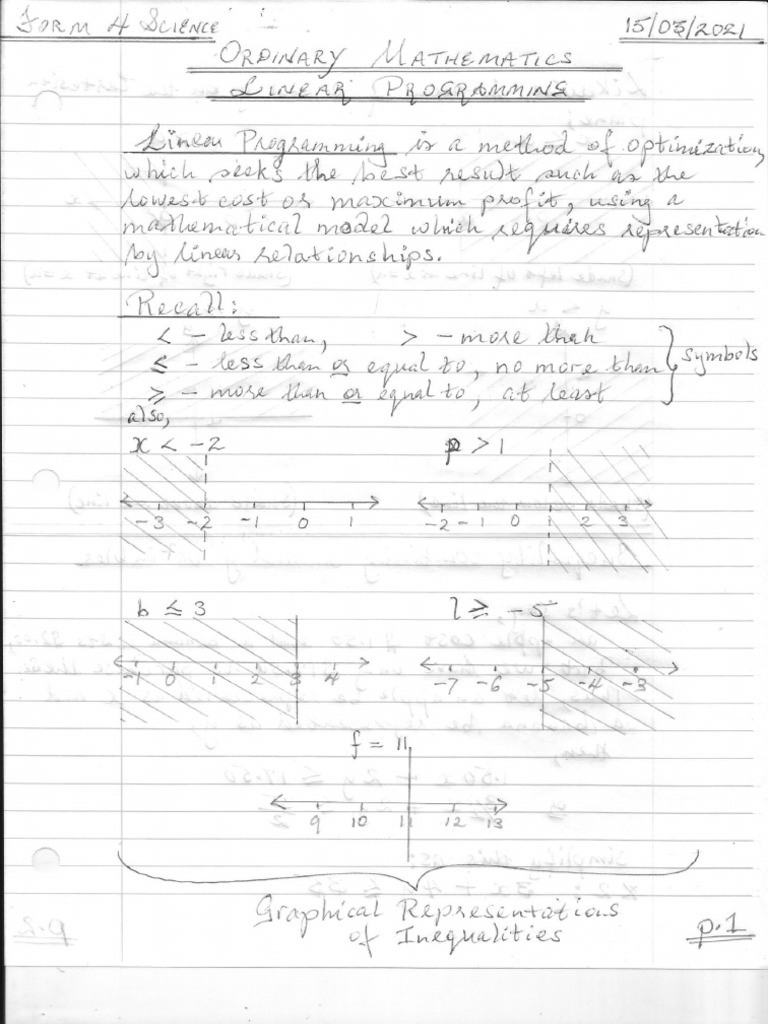 FORM 4 SCIENCE 15/03/2021
ORDINARY MATHEMATICS
LINEAR PROGRAMMING
Linear Programming is a method of optimization,
which seeks the best result such as the
lowest cost or maximum profit, using a
mathematical model which requires representation
by linear relationships.
Recall:
< - less than, > - more than
≤ - less than or equal to, no more than
≥ - more than or equal to, at least
symbols
also,
x < -2 p > 1
-3 -2 -1 0 1 -2 -1 0 1 2 3
b ≤ 3 l ≥ -5
-1 0 1 2 3 4 -7 -6 -5 -4 -3
f = 11
9 10 11 12 13
Graphical Representations
of Inequalities
p.1